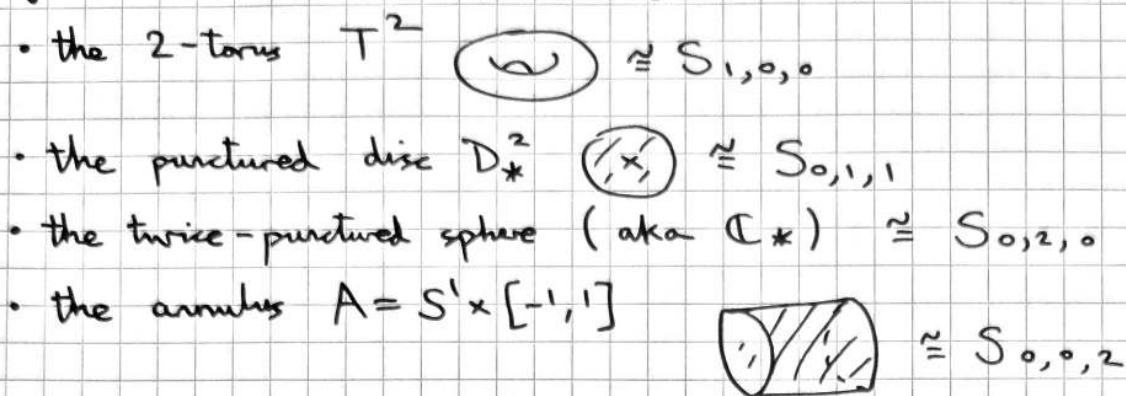 • the 2-torus T² ≅ S₁,₀,₀
• the punctured disc D²_* ≅ S₀,₁,₁
• the twice-punctured sphere (aka ℂ_*) ≅ S₀,₂,₀
• the annulus A = S¹ × [-1,1] ≅ S₀,₀,₂